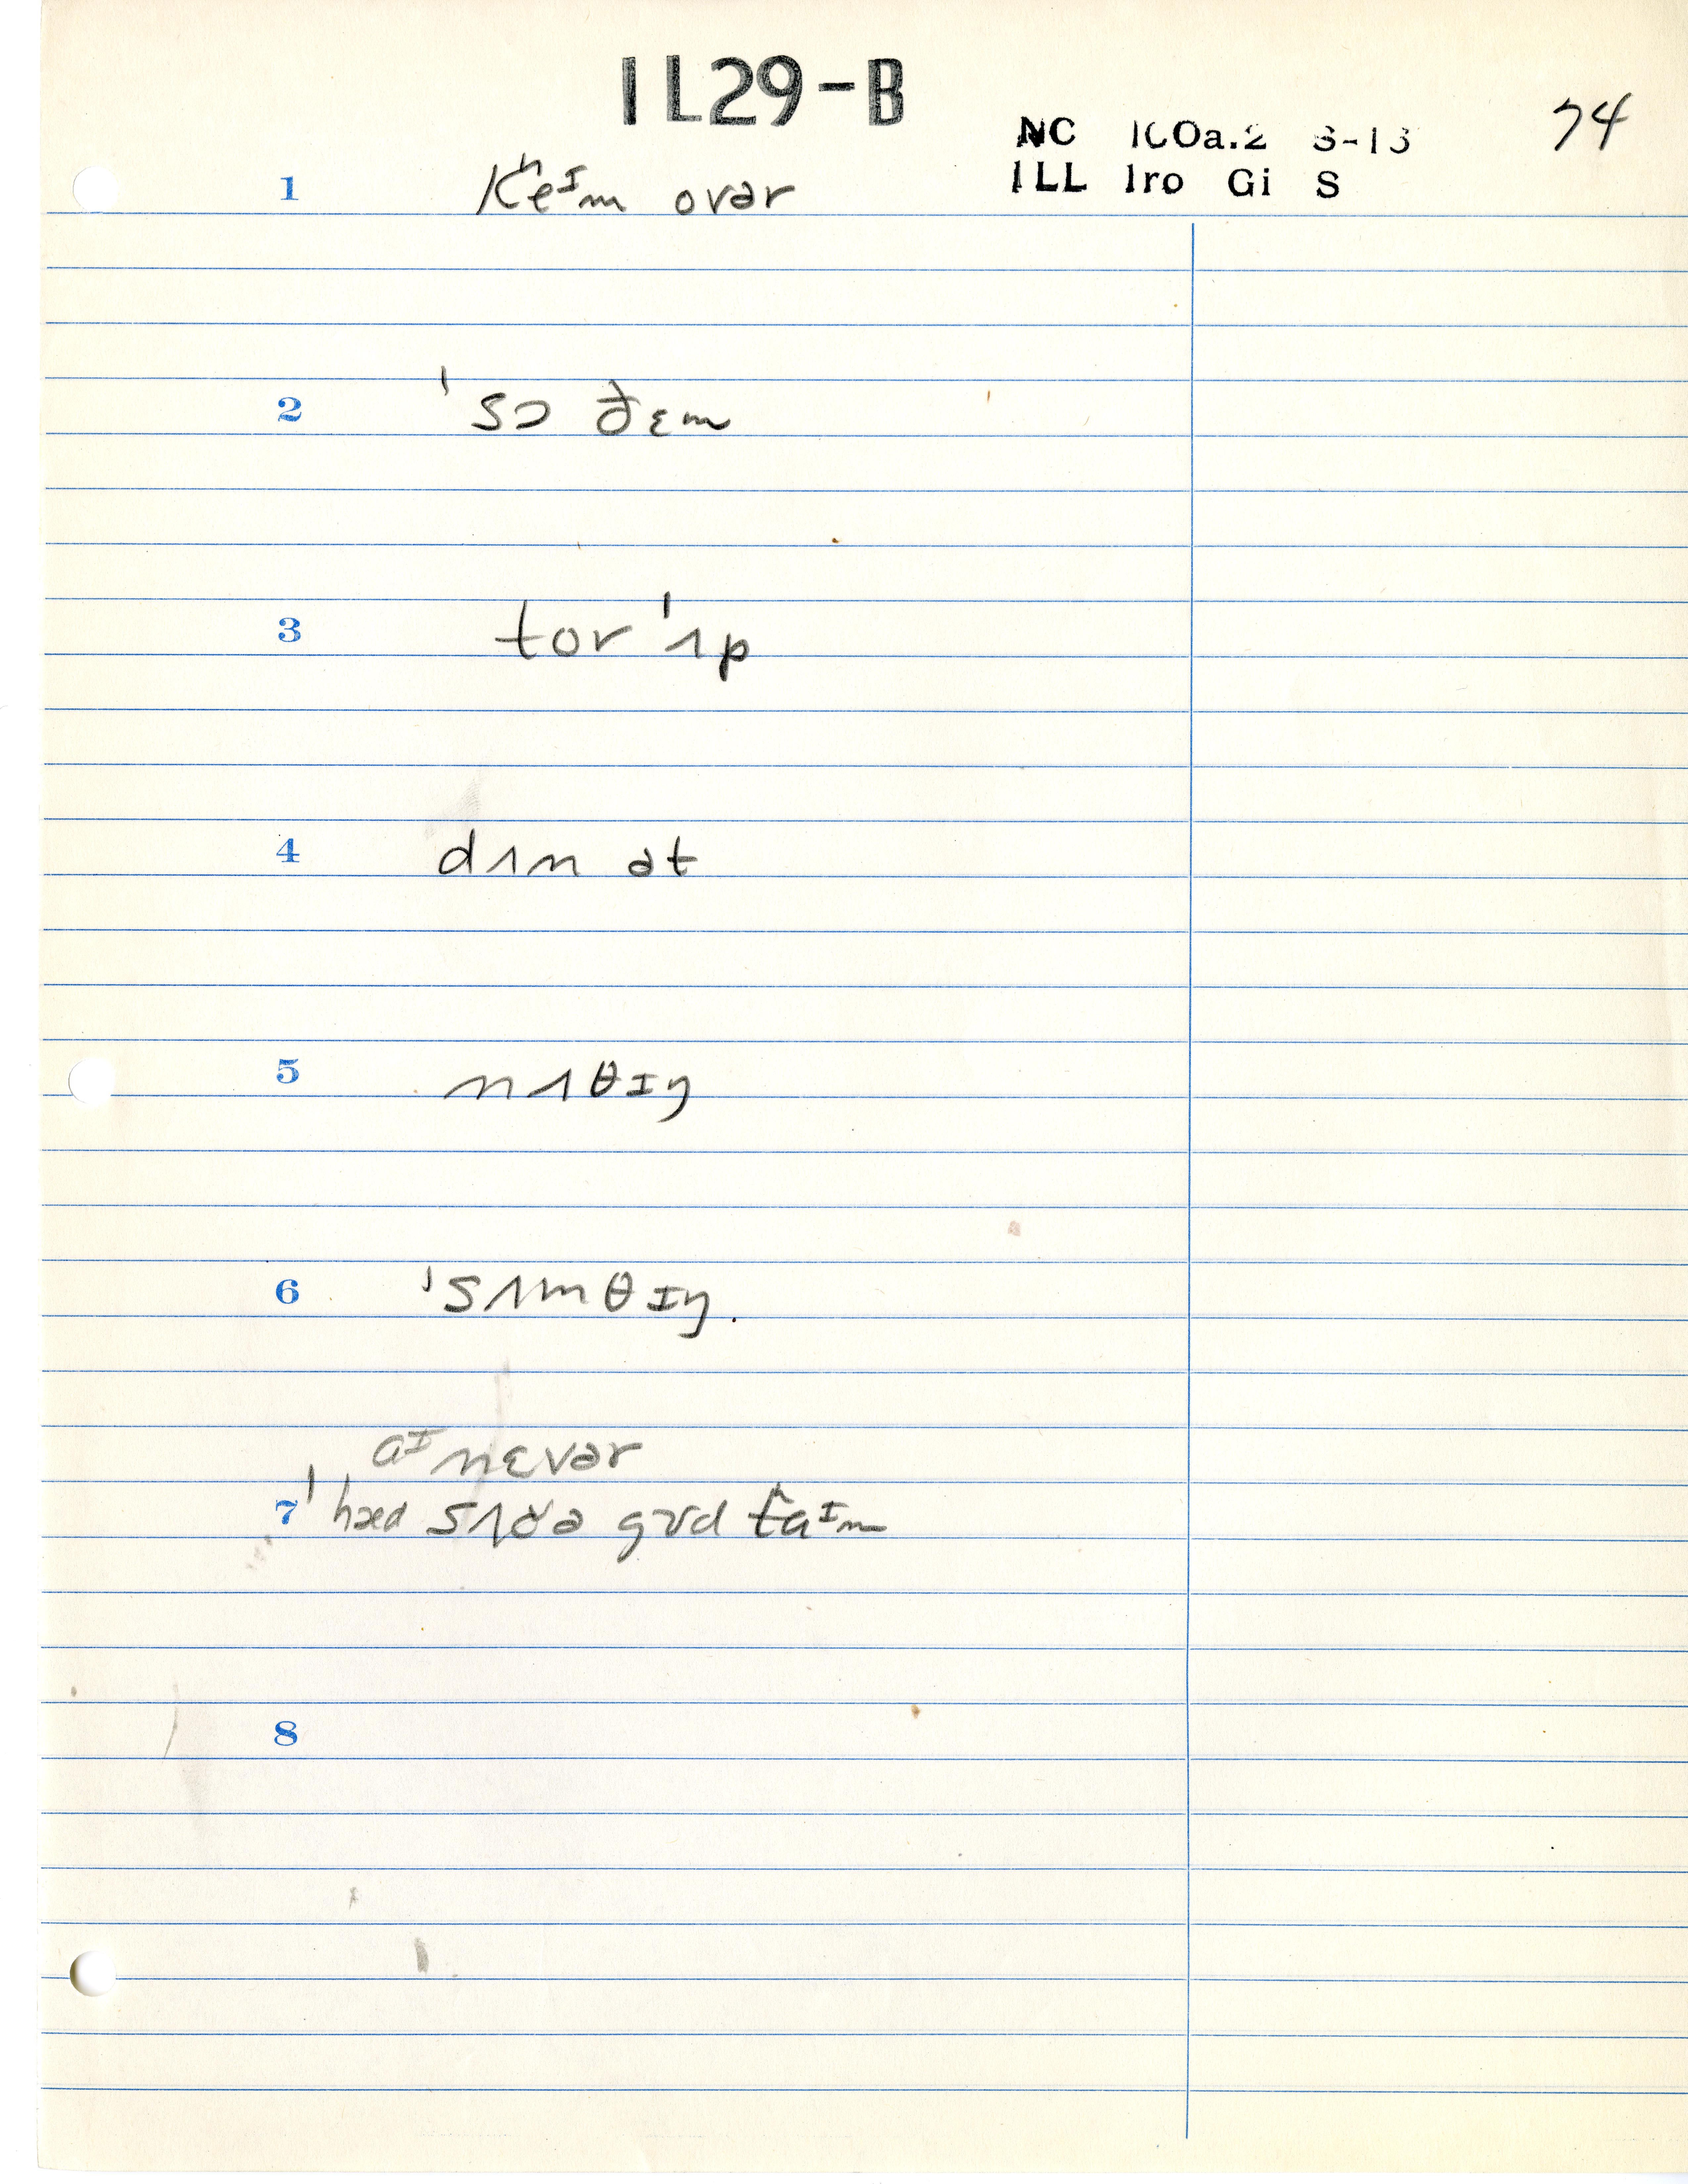 IL29-B
NC 100a.2 S-13 74
ILL Iro Gi S
1 kʰeᴵm ovər
2 ˈsɔ ðɛm
3 tor ˈʌp
4 dʌn ət
5 nʌθɪŋ
6 ˈsʌmθɪŋ.
aᴵ nɛvər
7 ˈhæd sʌðə gʊd tʰaᴵm
8